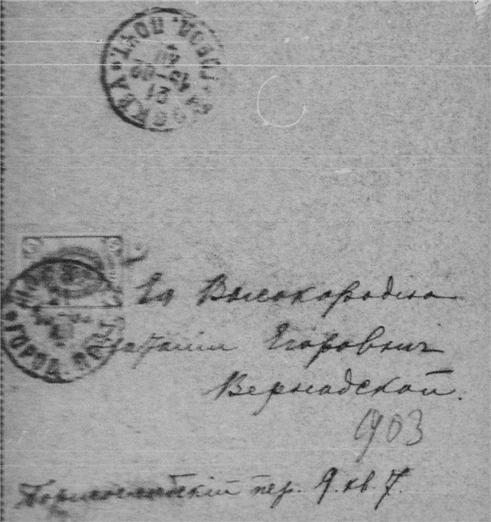 МОСКВА
ГОРОД. ПОЧТ.
21
ГОРОД. ПОЧТ.
Ея Высокородію
Наталіи Егоровнѣ
Вернадской.
1903
Борисоглѣбскій пер. 9. кв. 7.